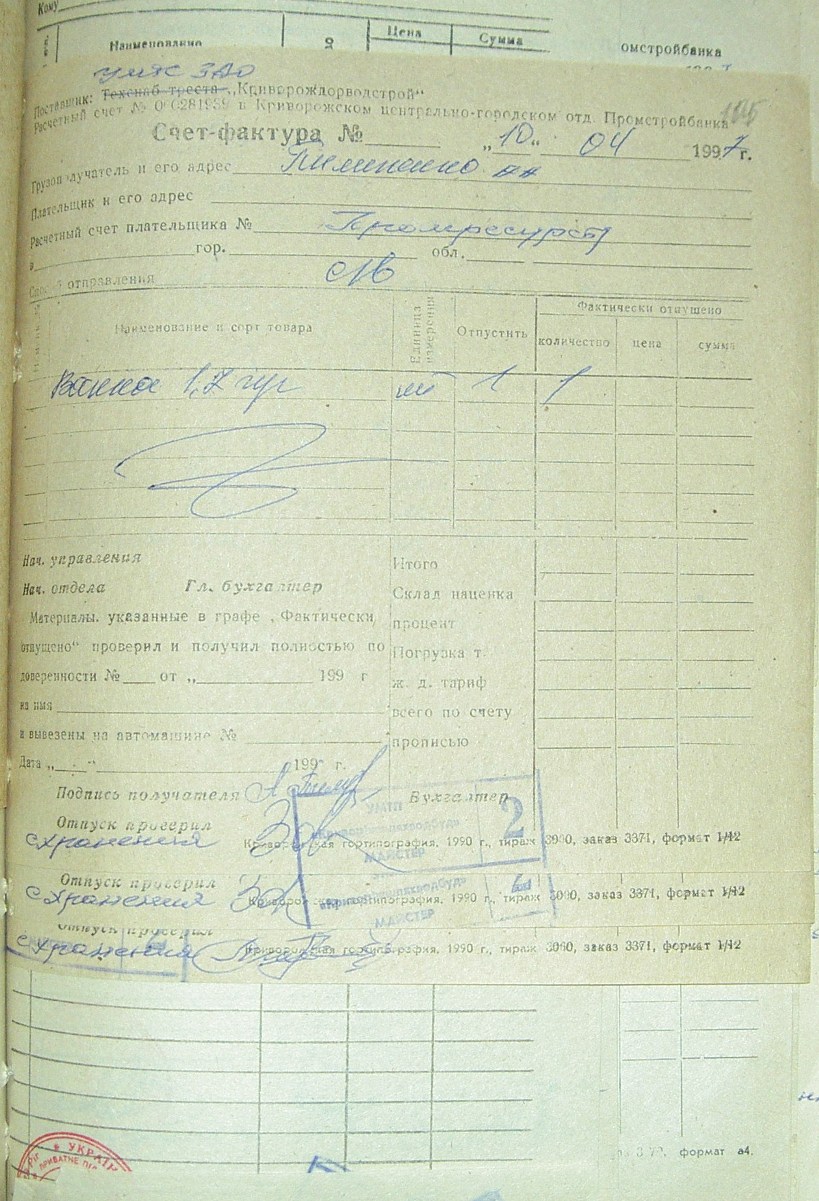 Кому
Наименование Цена Сумма омстройбанка
УМТС ЗАО
Поставщик: Техснаб треста „Криворождорводстрой“
Расчетный счет № 000281939 в Криворожском центрально-городском отд. Промстройбанка
Счет-фактура № „10“ 04 1997 г.
Грузополучатель и его адрес Пимененко
Плательщик и его адрес
Расчетный счет плательщика № Промресурсы
в гор. обл.
Способ отправления с/в
Наименование и сорт товара Единица измерения Отпустить Фактически отпущено
количество цена сумма
Ванна 1,7 чуг шт 1 1
Нач. управления Итого
Нач. отдела Гл. бухгалтер Склад наценка
Материалы, указанные в графе „Фактически процент
отпущено“ проверил и получил полностью по Погрузка т.
доверенности № от „ 199 г ж. д. тариф
на имя всего по счету
и вывезены на автомашине № прописью
Дата „ “ 199 г.
Подпись получателя Бухгалтер
УМТП 2
Отпуск проверил
с хранения Криворожская гортипография, 1990 г., тираж 3000, заказ 3371, формат 1/12
МАЙСТЕР
Отпуск проверил
с хранения Криворожская гортипография, 1990 г., тираж 3000, заказ 3371, формат 1/12
МАЙСТЕР
Отпуск проверил
с хранения Криворожская гортипография, 1990 г., тираж 3000, заказ 3371, формат 1/12
УКРАЇ
ПРИВАТНЕ ПІ
формат а4.